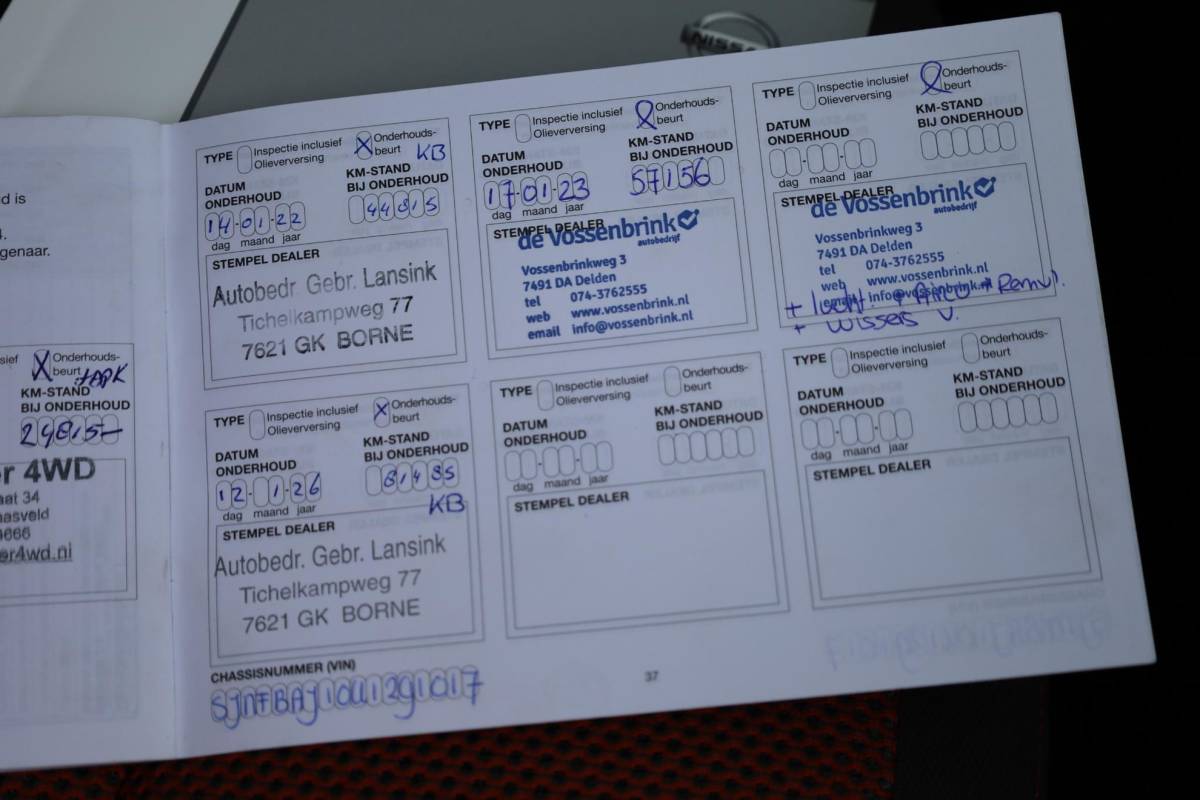 NISSAN
d is
4.
genaar.
sief
Onderhouds-
beurt
+APK
KM-STAND
BIJ ONDERHOUD
24815
er 4WD
aat 34
aasveld
9666
er4wd.nl
TYPE
Inspectie inclusief
Olieverversing
X
Onderhouds-
beurt
KB
DATUM
ONDERHOUD
KM-STAND
BIJ ONDERHOUD
14-01-22
44815
dag maand jaar
STEMPEL DEALER
Autobedr. Gebr. Lansink
Tichelkampweg 77
7621 GK BORNE
TYPE
Inspectie inclusief
Olieverversing
Onderhouds-
beurt
DATUM
ONDERHOUD
KM-STAND
BIJ ONDERHOUD
17-01-23
57156
dag maand jaar
STEMPEL DEALER
de Vossenbrink
autobedrijf
Vossenbrinkweg 3
7491 DA Delden
tel 074-3762555
web www.vossenbrink.nl
email info@vossenbrink.nl
TYPE
Inspectie inclusief
Olieverversing
Onderhouds-
beurt
DATUM
ONDERHOUD
KM-STAND
BIJ ONDERHOUD
dag maand jaar
STEMPEL DEALER
de Vossenbrink
autobedrijf
Vossenbrinkweg 3
7491 DA Delden
tel 074-3762555
web www.vossenbrink.nl
email info@vossenbrink.nl
+ Airco + Remvl.
+ wissers v.
TYPE
Inspectie inclusief
Olieverversing
X
Onderhouds-
beurt
DATUM
ONDERHOUD
KM-STAND
BIJ ONDERHOUD
12-1-26
81485
dag maand jaar
KB
STEMPEL DEALER
Autobedr. Gebr. Lansink
Tichelkampweg 77
7621 GK BORNE
TYPE
Inspectie inclusief
Olieverversing
Onderhouds-
beurt
DATUM
ONDERHOUD
KM-STAND
BIJ ONDERHOUD
dag maand jaar
STEMPEL DEALER
TYPE
Inspectie inclusief
Olieverversing
Onderhouds-
beurt
DATUM
ONDERHOUD
KM-STAND
BIJ ONDERHOUD
dag maand jaar
STEMPEL DEALER
CHASSISNUMMER (VIN)
SJNFBAJ10U1291017
37